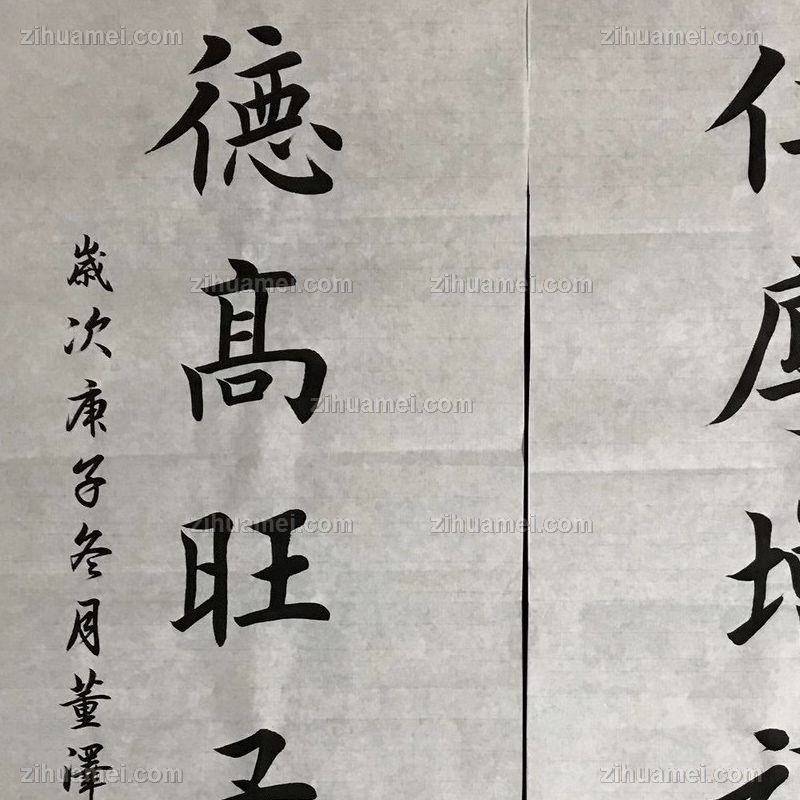 仁厚增福
德高旺子
歲次庚子冬月董澤
zihuamei.com
zihuamei.com
zihuamei.com
zihuamei.com
zihuamei.com
zihuamei.com
zihuamei.com
zihuamei.com
zihuamei.com